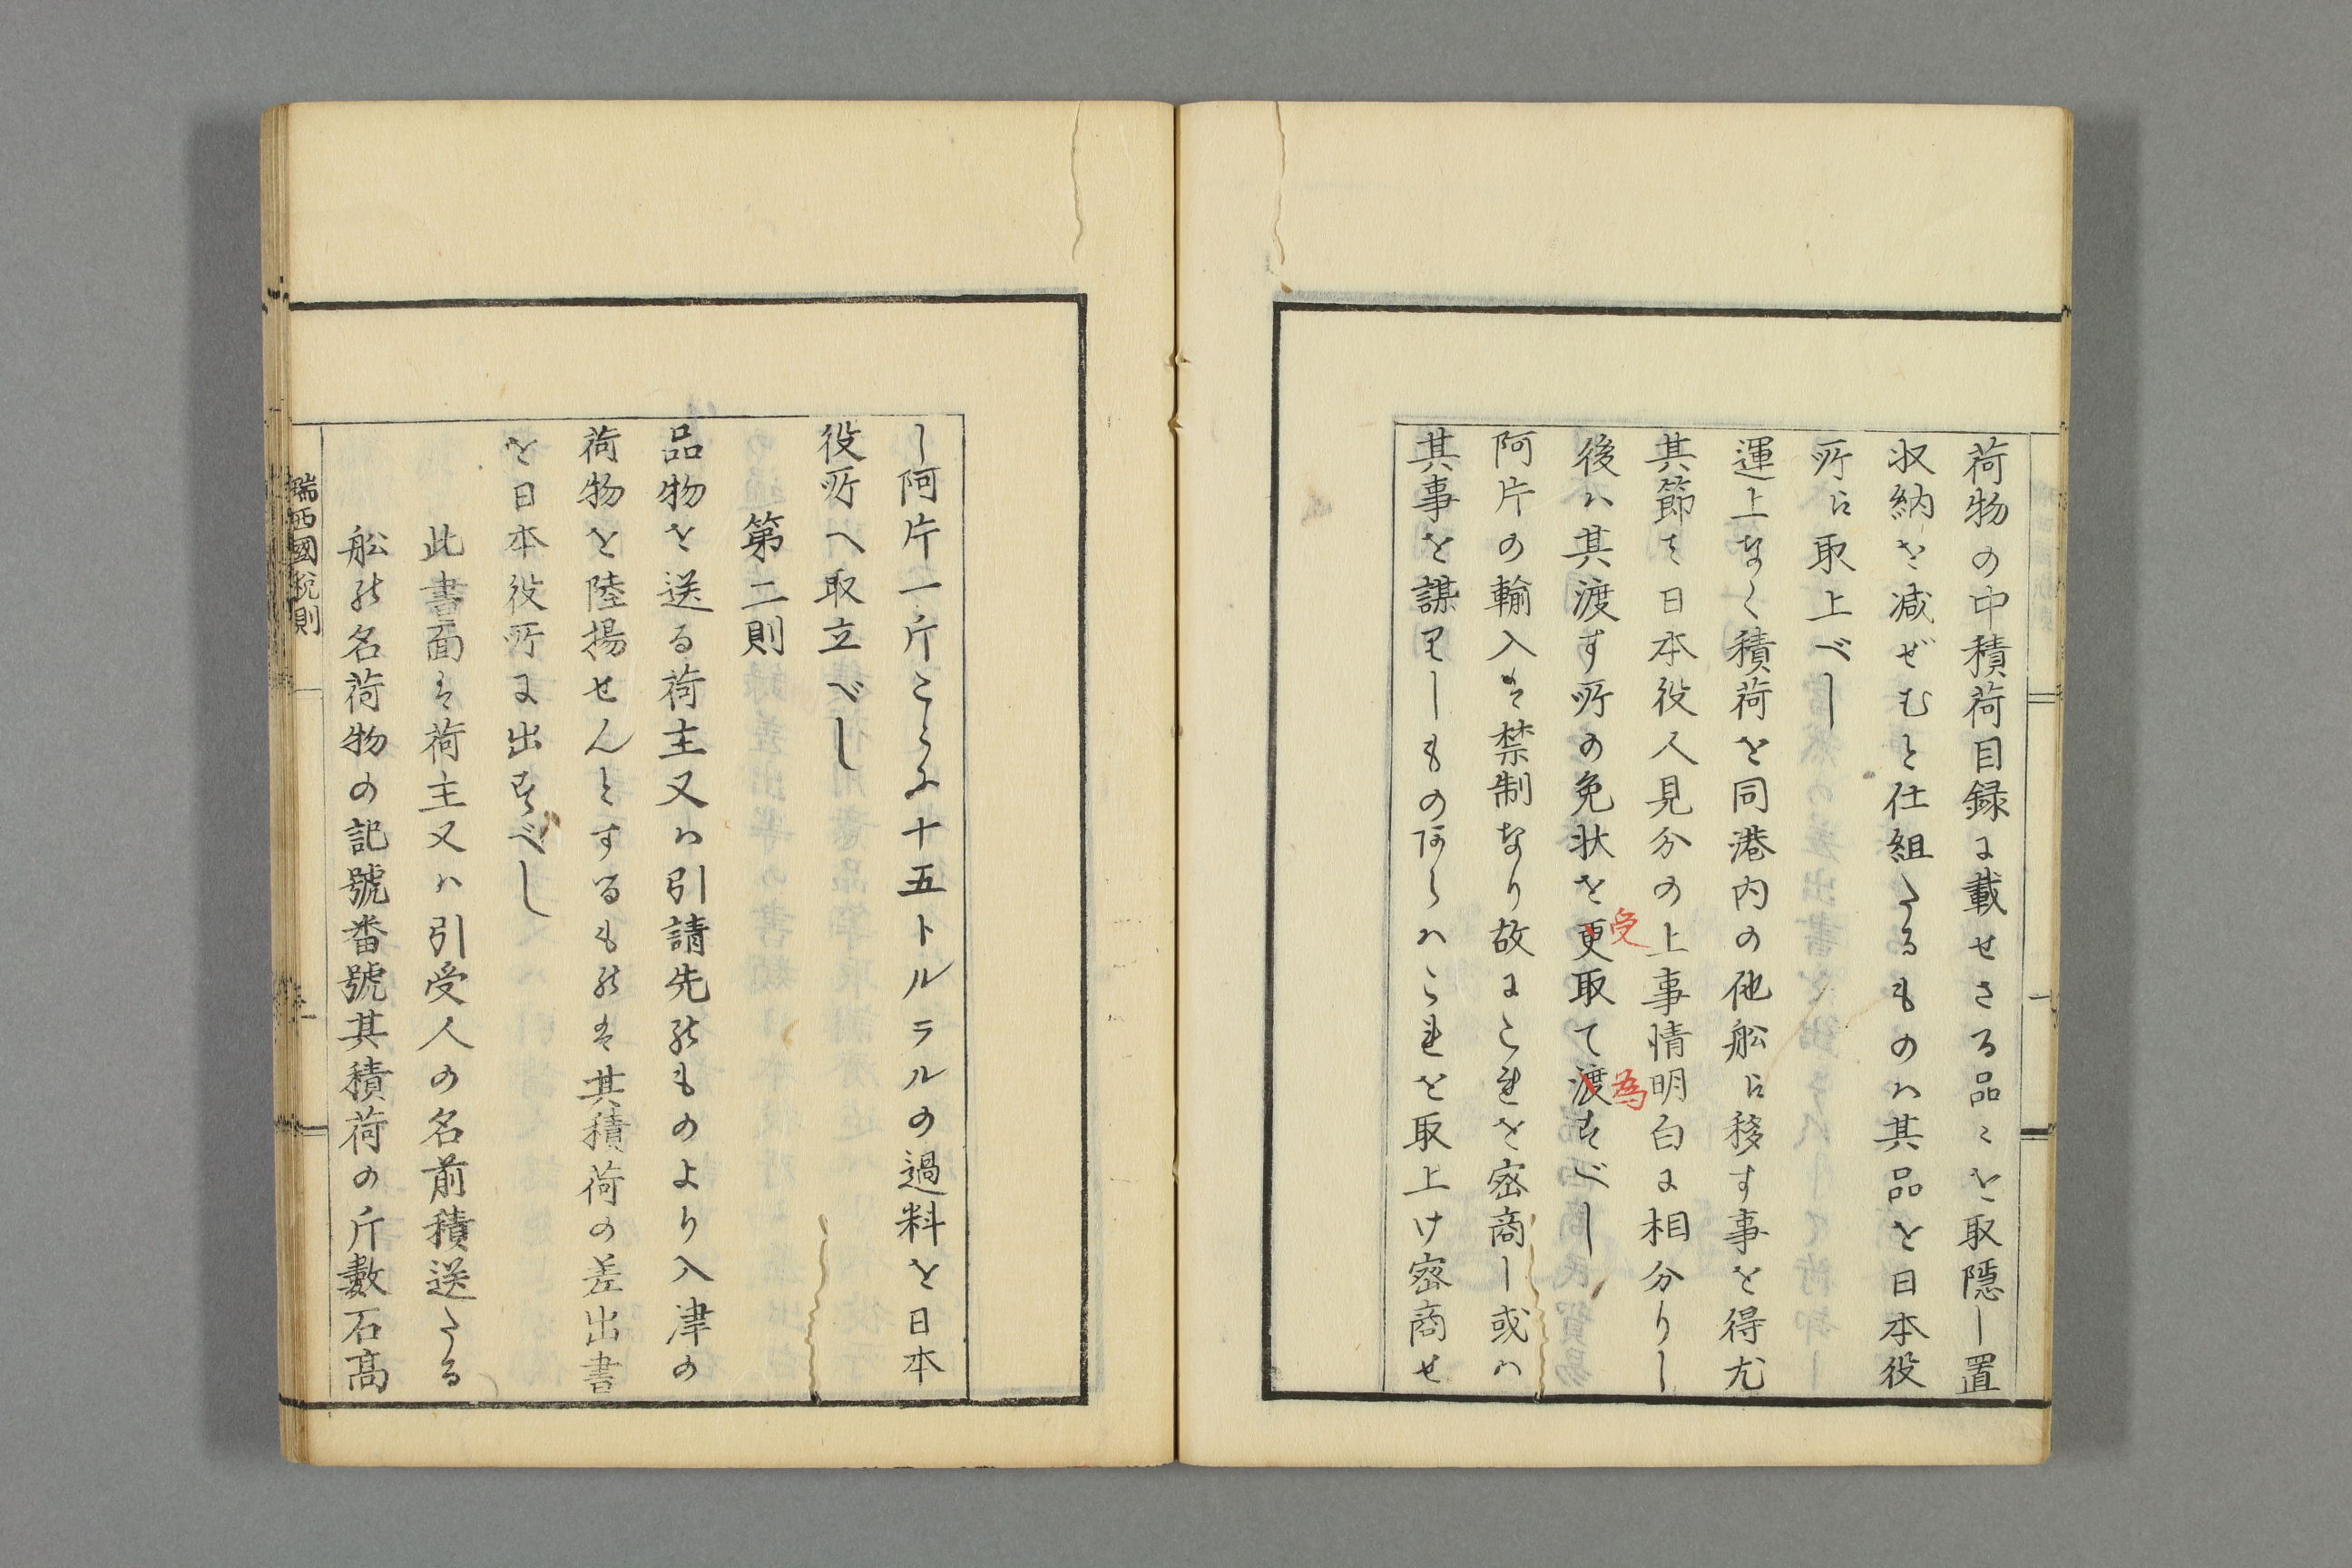 荷物の中積荷目録に載せさる品々を取隠し置
収納を减ぜむと仕組たるものハ其品を日本役
所に取上べし
運上なく積荷を同港内の他舩に移す事を得尤
其節は日本役人見分の上事情明白に相分りし
後ハ其渡す所の免状を更取て渡すべし
受
為
阿片の輸入は禁制なり故にこれを密商し或ハ
其事を謀りしものあらハこれを取上け密商せ
し阿片一斤ことに十五トルラルの過料を日本
役所へ取立べし
第二則
品物を送る荷主又ハ引請先のものより入津の
荷物を陸揚せんとするものは其積荷の差出書
を日本役所に出すべし
此書面は荷主又ハ引受人の名前積送たる
舩の名荷物の記號番號其積荷の斤數石高
瑞西國税則